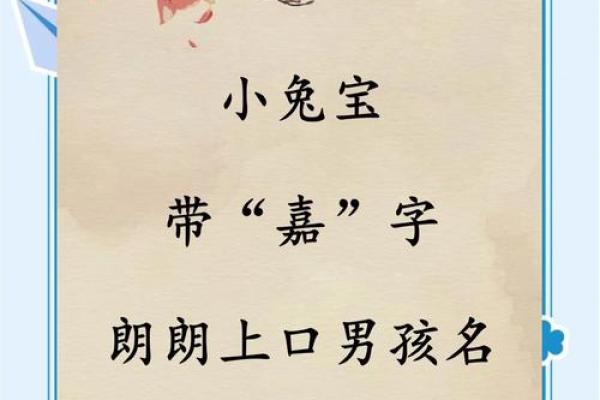 小兔宝
带“嘉”字
朗朗上口男孩名